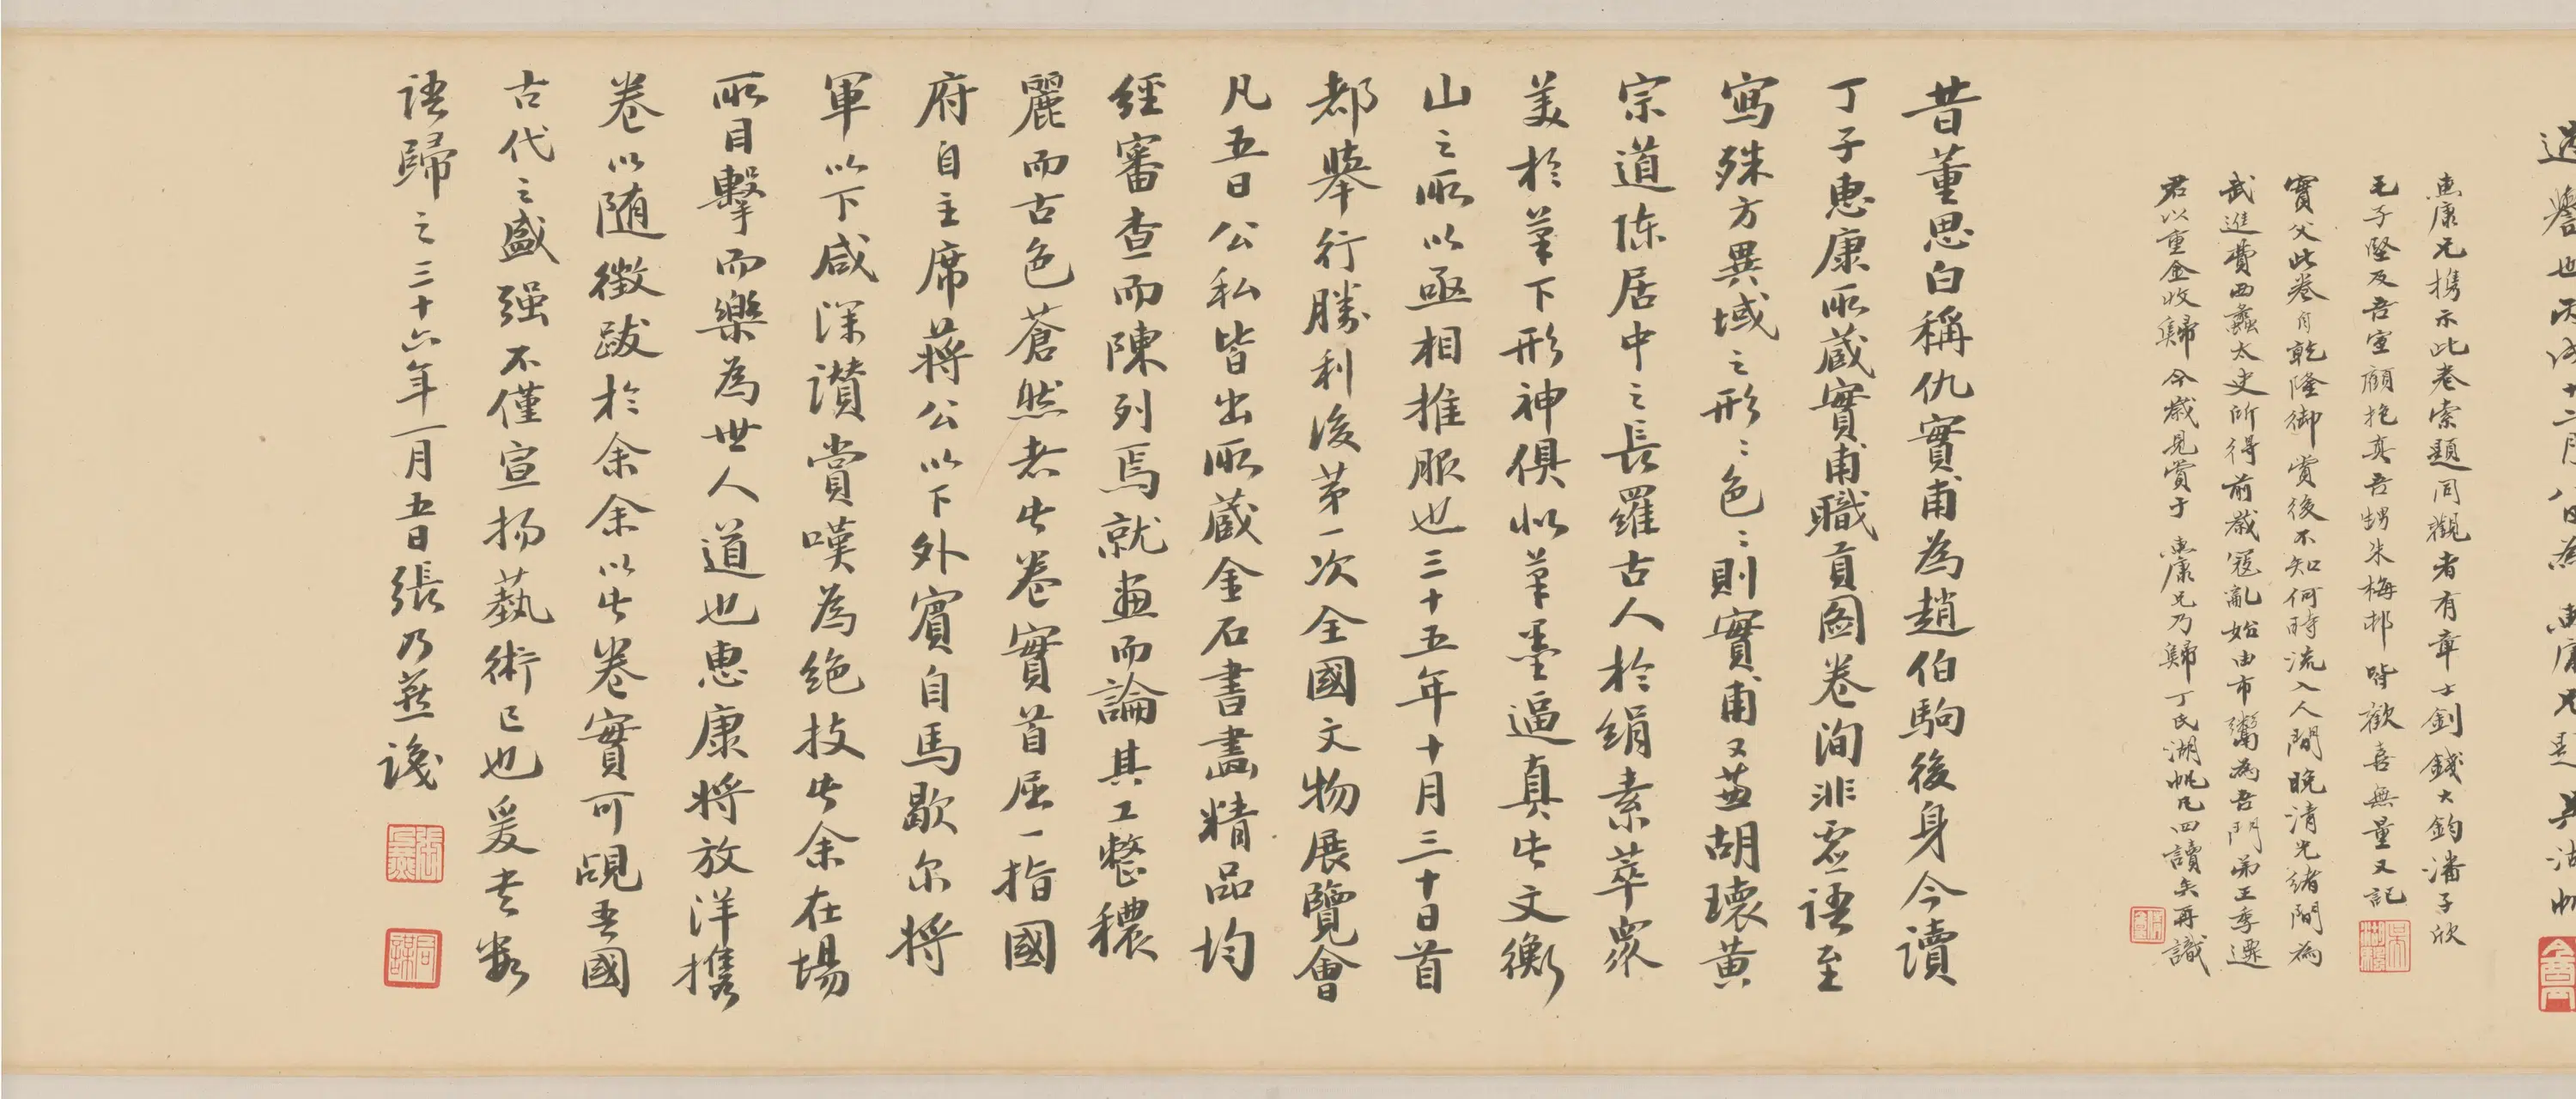 過譽也丙戌十二月八日為惠康兄題吳湖帆
惠康兄攜示此卷索題同觀者有章士釗錢大鈞潘子欣
毛子堅及吾室顧抱真吾甥朱梅邨皆歡喜無量又記
實父此卷自乾隆御賞後不知何時流入人間晚清光緒間為
武進費西蠡太史所得前歲寇亂始由市鬻為吾門弟王季遷
君以重金收歸今歲見賞于惠康兄乃歸丁氏湖帆凡四讀矣再識
昔董思白稱仇實甫為趙伯駒後身今讀
丁子惠康所藏實甫職貢圖卷洵非虛語至
寫殊方異域之形形色色則實甫又兼胡瓌黃
宗道陳居中之長羅古人於絹素萃眾
美於筆下形神俱似筆墨逼真此文衡
山之所以亟相推服也三十五年十月三十日首
都舉行勝利後第一次全國文物展覽會
凡五日公私皆出所藏金石書畫精品均
經審查而陳列焉就畫而論其工整穠
麗而古色蒼然者此卷實首屈一指國
府自主席蔣公以下外賓自馬歇尔將
軍以下咸深讚賞嘆為絕技此余在場
所目擊而樂為世人道也惠康將放洋攜
卷以隨徵跋於余余以此卷實可覘吾國
古代之盛强不僅宣扬藝術已也爰書數
語歸之三十六年一月五日張乃燕識